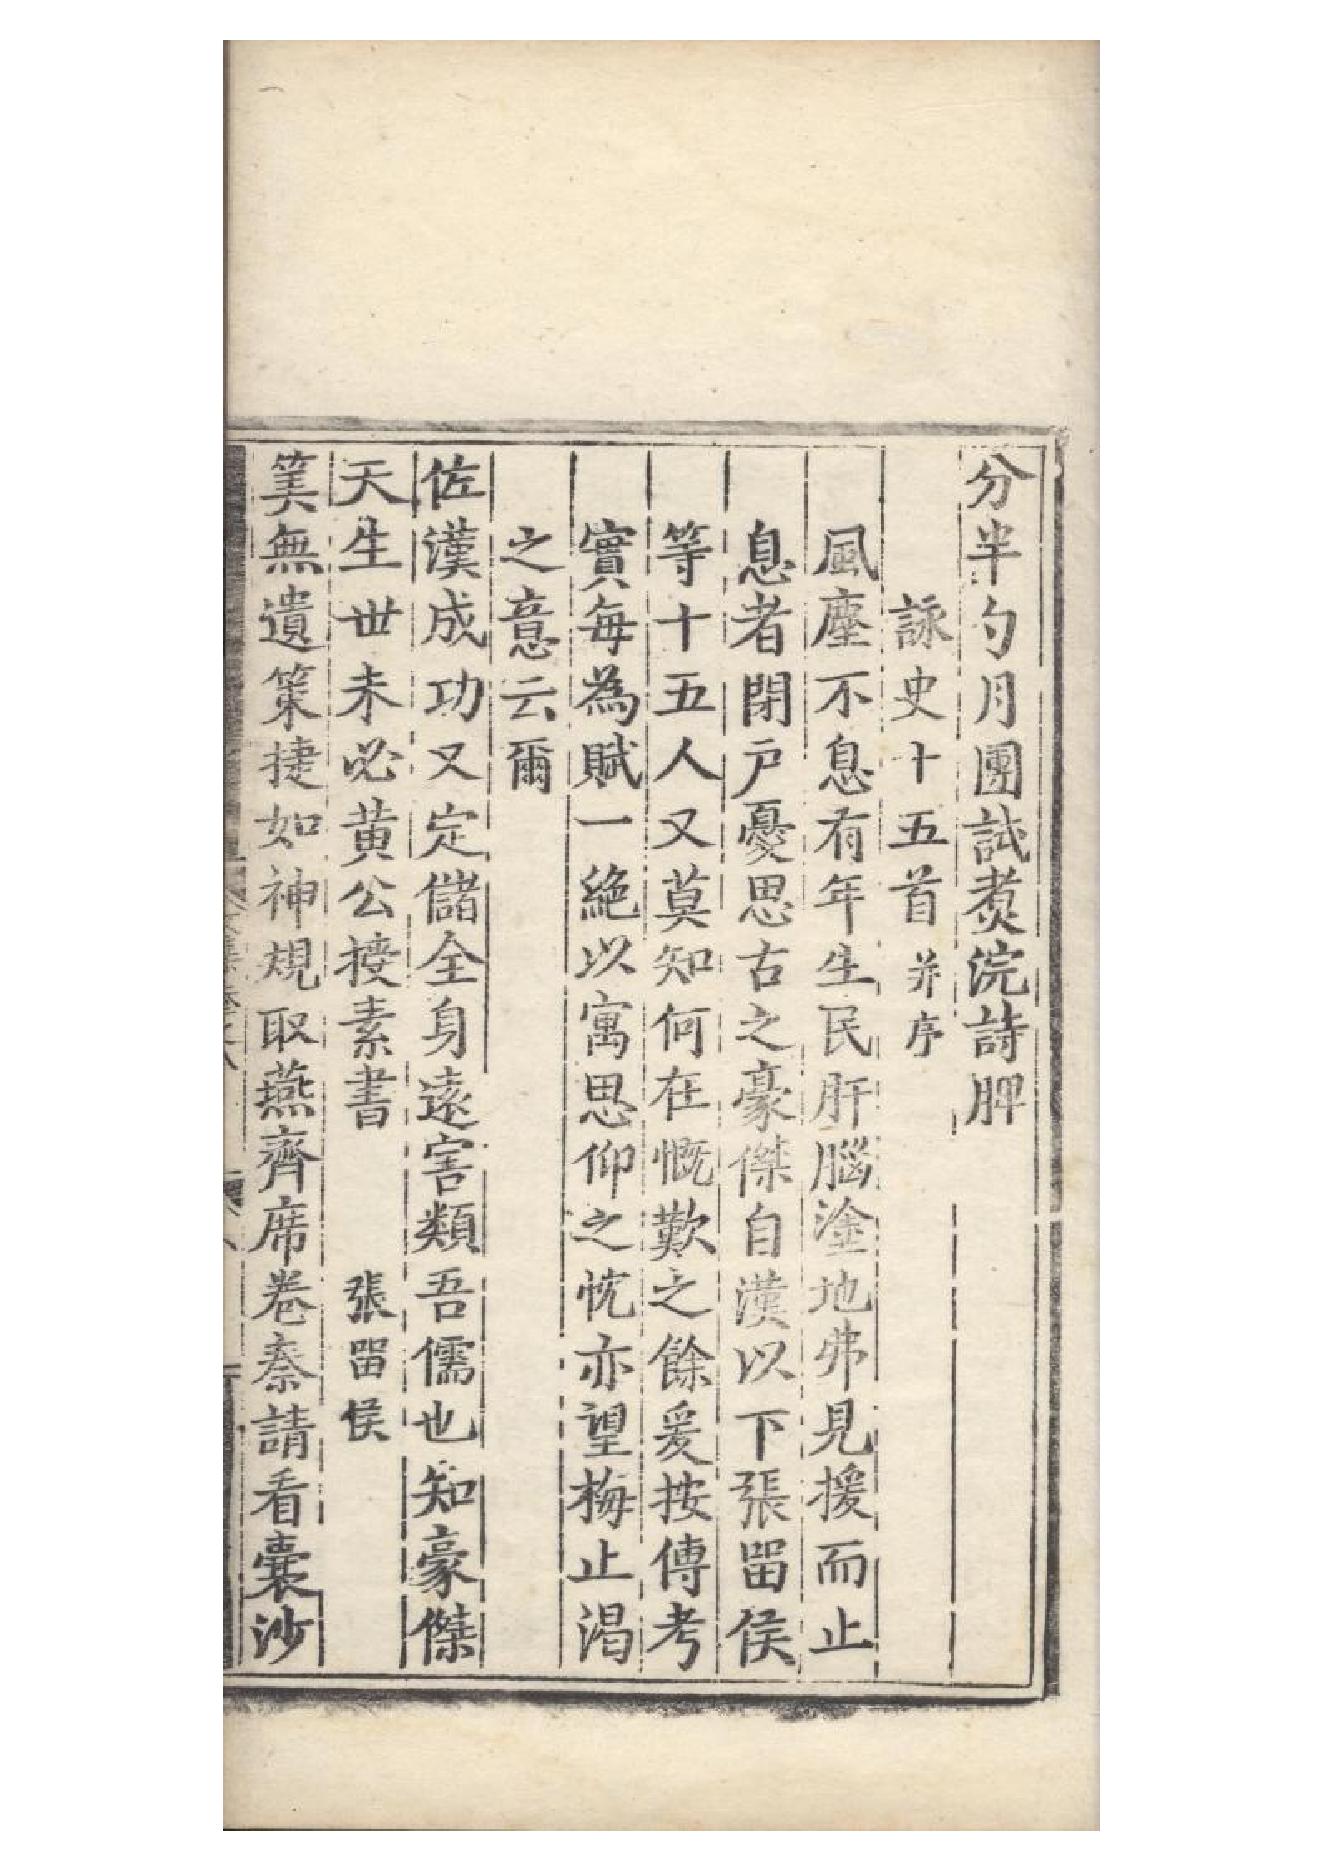 分半勺月團試煑浣詩脾
詠史十五首并序
風塵不息有年生民肝腦塗地弗見援而止
息者閉戸憂思古之豪傑自漢以下張畱侯
等十五人又莫知何在慨歎之餘爰按傳考
實每為賦一絶以寓思仰之忱亦望梅止渴
之意云爾
佐漢成功又定儲全身遠害類吾儒也知豪傑
天生世未必黄公授素書 張畱侯
筭無遺策捷如神規取燕齊席卷秦請看囊沙